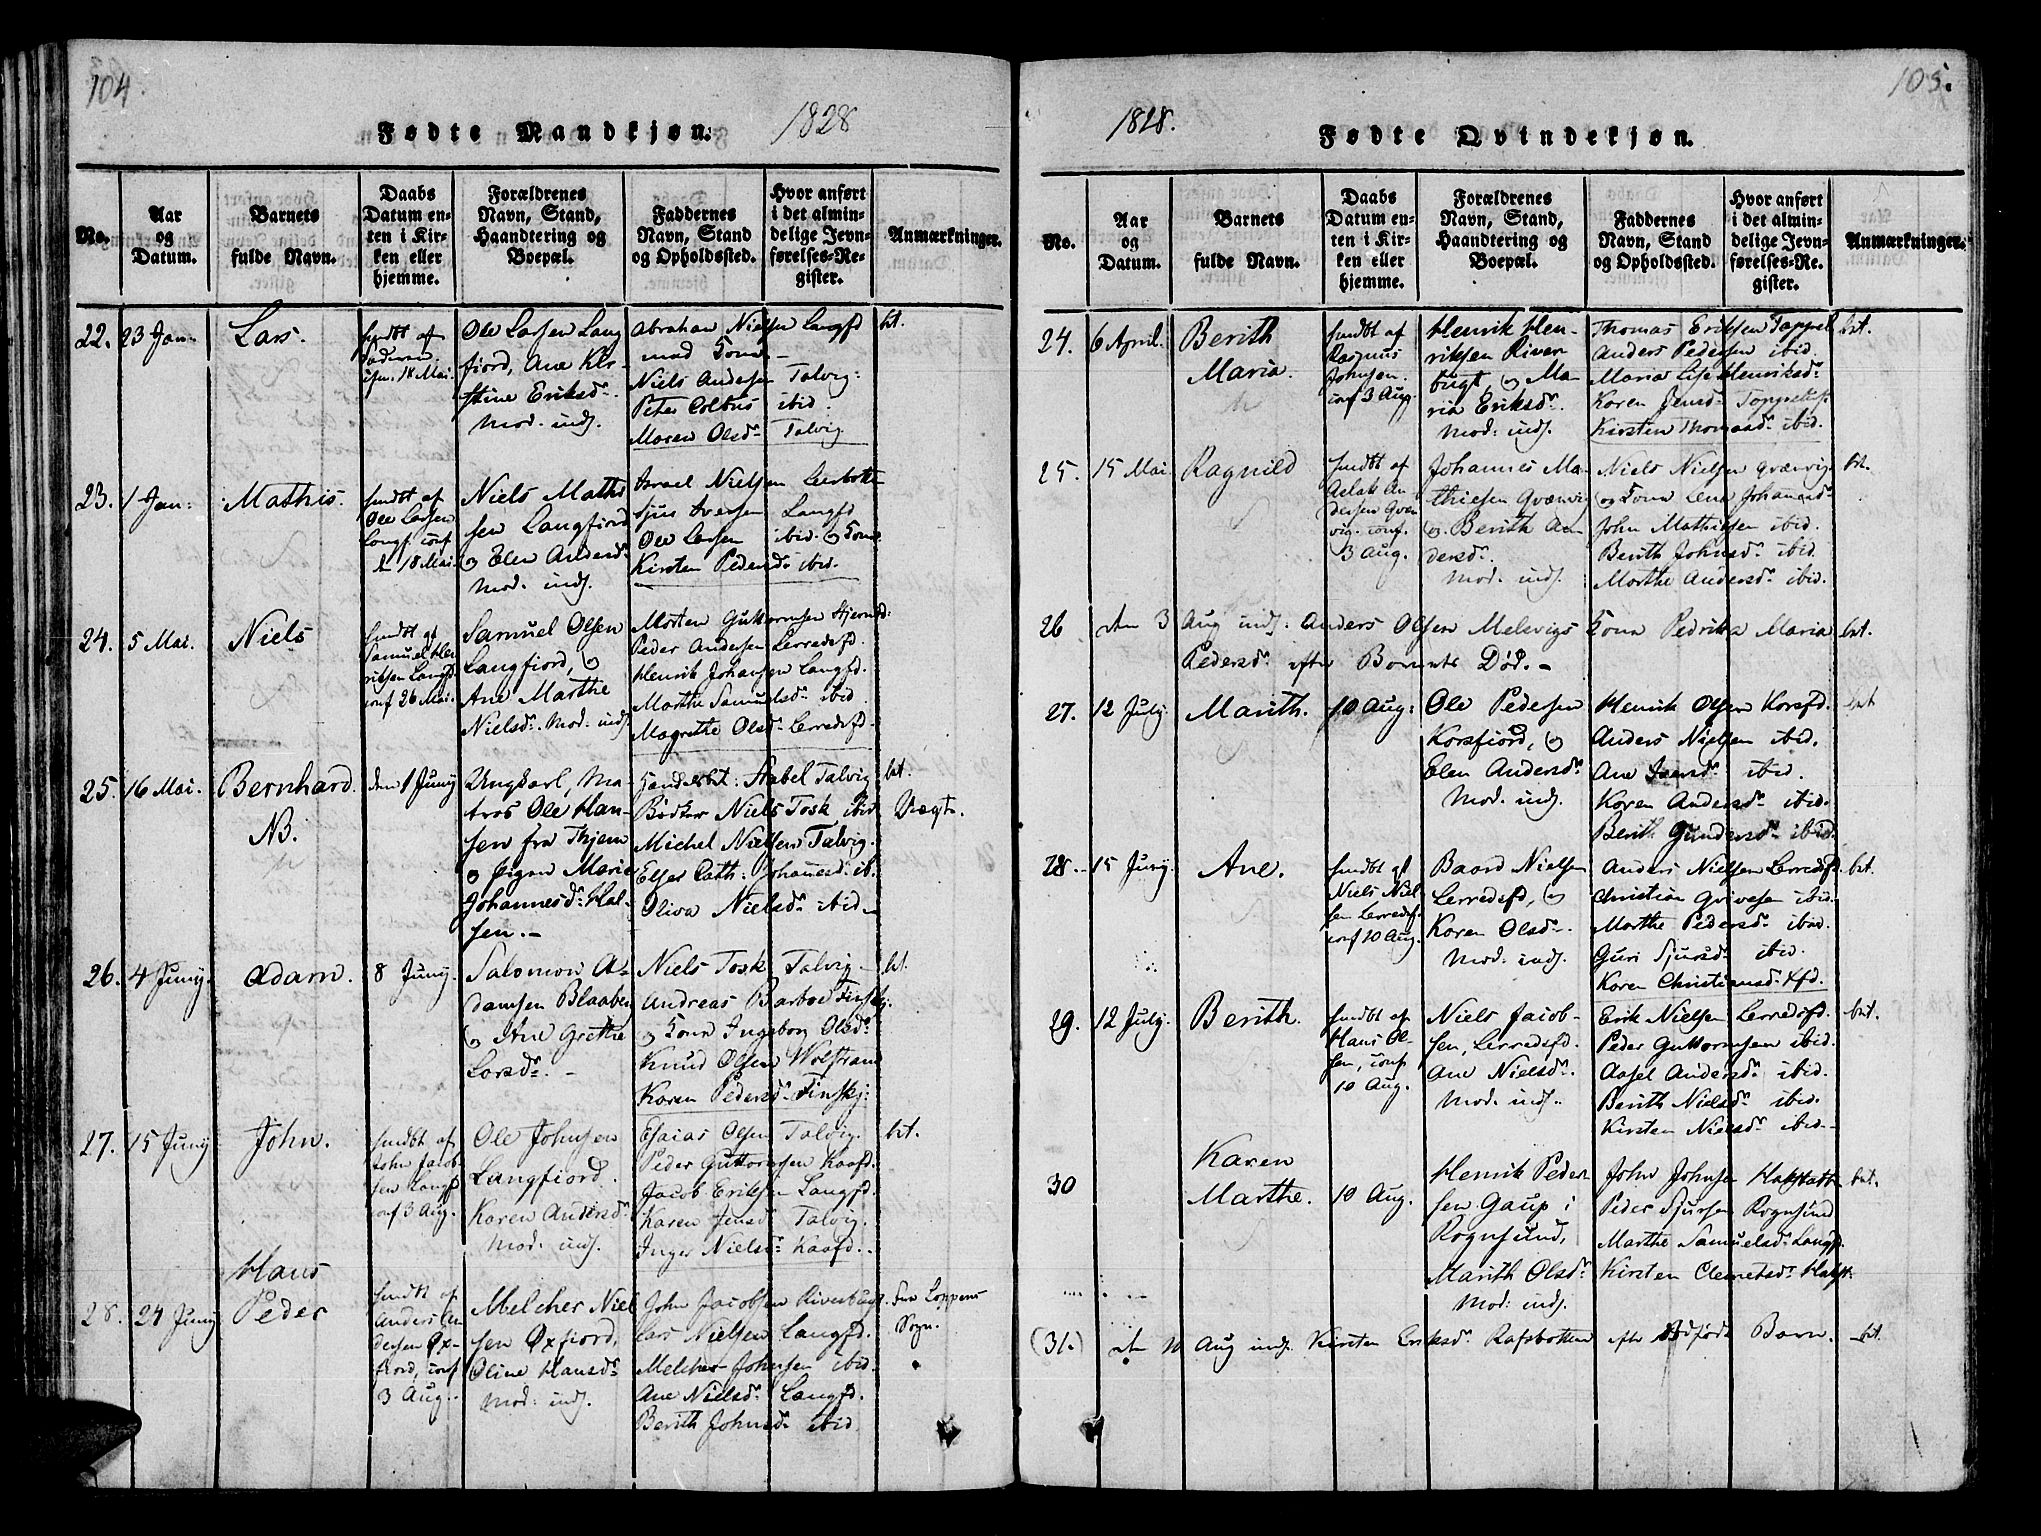 104.
Fødte Mandkjøn. 1828
No.
Aar
og
Datum.
Barnets
fulde Navn.
Daabs
Datum en-
ten i Kir-
ken eller
hjemme.
Forældrenes
Navn, Stand,
Haandtering og
Boepæl.
Faddernes
Navn, Stand
og Opholdssted.
Hvor anført
i det almin-
delige Jevn-
førelses-Re-
gister.
Anmærkninger.
22. 23 Jan. Lars.
hmdbt af
conf. 18 Mai.
Ole Larsen Lang
fiord, Ane Kir-
stine Eriksd.
Mod. indl.
Abraham Nielsen Langfd
med Kone
Niels Andersen Talvig.
Peter Colbus ibid.
Maren Olsd. Talvig
bt.
23. 1 Jan: Mathis.
hmdbt af
Ole Larsen
Langf. conf
18 Mai
Niels Mathi
sen Langfiord
og Elen Andersd.
Mod. indl.
Israel Nielsen Lerbotten
Sjur Iversen Langfd
Ole Larsen ibid. og Kone
Kirsten Pedersd. ibid.
24. 5 Mai. Niels
hmdbt af
Samuel Hen
riksen Langfd.
conf 26 Mai.
Samuel Olsen
Langfiord, og
Ane Marthe
Nielsd. Mod. indl.
Morten Guttormsen Stjernsd.
Peder Andersen Lerredsfd.
Henrik Johansen Langfd.
Marthe Samuelsd. ibid
Magrethe Olsd. Lerredsfd.
25. 16 Mai. Bernhard.
NB.
den 1 Junij
Ungkarl, Ma-
tros Ole Han-
sen fra Thjem
og Pigen Marie
Johannesd. Hal-
sen.
Handelsbet: Stabel Talvig
Bødker Niels Tosk ibid
Michel Nielsen Talvig.
Elser Cath: Johannesd. ib.
Oliva Nielsd. ibid
bt.
Uægte.
26. 4 Junij. Adam. 8 Junij.
Salomon A-
damsen Blaaben
og Ane Grethe
Larsd.
Niels Tosk Talvig
Andreas Barboe Finskj.
og Kone Ingeborg Olsd.
Knud Olsen Wolstrand
Karen Pedersd. Finskj.
bt.
27. 15 Junij John.
hmdbt af
John Jacob-
sen Langf
conf 3 Aug.
Ole Johnsen
Langfiord.
Karen Andersd.
Mod. indl.
Esaias Olsen Talvig.
Peder Guttormsen Kaafd.
Jacob Eriksen Langfd.
Karen Jensd. Talvig.
Inger Nielsd. Kaafd.
bt.
28. 24 Junij Hans
Peder
hmdbt af
Anders An
dersen Øx-
fiord, conf
3 Aug.
Melcher Niel
sen Øxfiord,
Oline Hansd.
Mod. indl.
John Jacobsen Riverbugt.
Lars Nielsen Langfd.
Melcher Johnsen ibid.
Ane Nielsd. Langfd.
Berith Johnsd. ibid.
Fra Loppens
Sogn.
105.
1828. Fødte Qvindekjøn.
No.
Aar
og
Datum.
Barnets
fulde Navn.
Daabs
Datum en-
ten i Kir-
ken eller
hjemme.
Forældrenes
Navn, Stand,
Haandtering og
Boepæl.
Faddernes
Navn, Stand
og Opholdssted.
Hvor anført
i det almin-
delige Jevn-
førelses-Re-
gister.
Anmærkninger.
24. 6 April. Berith
Maria.
hmdbt af
Rasmus
Johnsen.
conf 3 Aug
Henrik Hen-
riksen River
bugt, og Ma-
ria Eriksd.
Mod: indl.
Thomas Eriksen Toppel
Anders Pedersen ibid
Maria Lise Henriksd.
Karen Jensd.
Kirsten Thomasd. ibid.
bt.
25. 15 Mai Ragnild
hmdbt af
Aslak An
dersen Qvæn
vig. conf.
3 Aug.
Johannes Ma-
thiesen Qvænvig
og Berith An
dersd.
Mod. indl.
Niels Nielsen Qvænvig
og Kone Lena Johannesd.
John Mathiesen ibid.
Berith Johnsd. ibid.
Marthe Andersd. ibid.
bt.
26 den 3 Aug indl: Anders Olsen Melsvigs Kone Pedrika Maria bt.
Pedersd. efter Barnets Død.
27. 12 July. Marith. 10 Aug:
Ole Pedersen
Korsfiord, og
Elen Andersd.
Mod. indl.
Henrik Olsen Korsfd.
Anders Nielsen ibid.
Ane Iversd. ibid.
Karen Andersd. ibid.
Berith Gundersd. ibid.
bt
28. 15 Junij. Ane.
hmdbt af
Niels Niel
sen Lerredsf.
conf 10 Aug.
Baard Nielsen
Lerredsfd, og
Karen Olsd.
Mod. indl.
Anders Nielsen Lerredsfd
Christian Qvivesen ibid.
Marthe Pedersd. ibid.
Guri Sjursd. ibid.
Karen Christiansd. Kfd.
bt.
29. 12 July. Berith.
hmdbt af
Hans Ol-
sen, conf
10 Aug.
Niels Jacob-
sen, Lerredsfd.
Ane Nielsd.
Mod. indl.
Erik Nielsen Lerredsfd.
Peder Guttormsen ibid.
Aasel Andersd. ibid.
Berith Nielsd. ibid.
Kirsten Nielsd. ibid.
bt.
30 Karen
Marthe. 10 Aug.
Henrik Peder
sen Gaup i
Rognsund,
Marith Olsd.
Mod: indl.
John Johnsen
Peder Sjursen Rognsund
Marthe Samuelsd. Langfd.
Kirsten Clemetsd.
bt.
(31.) den 10 Aug indl. Kirsten Eriksd. Rafsbotten efter Barn. bt.